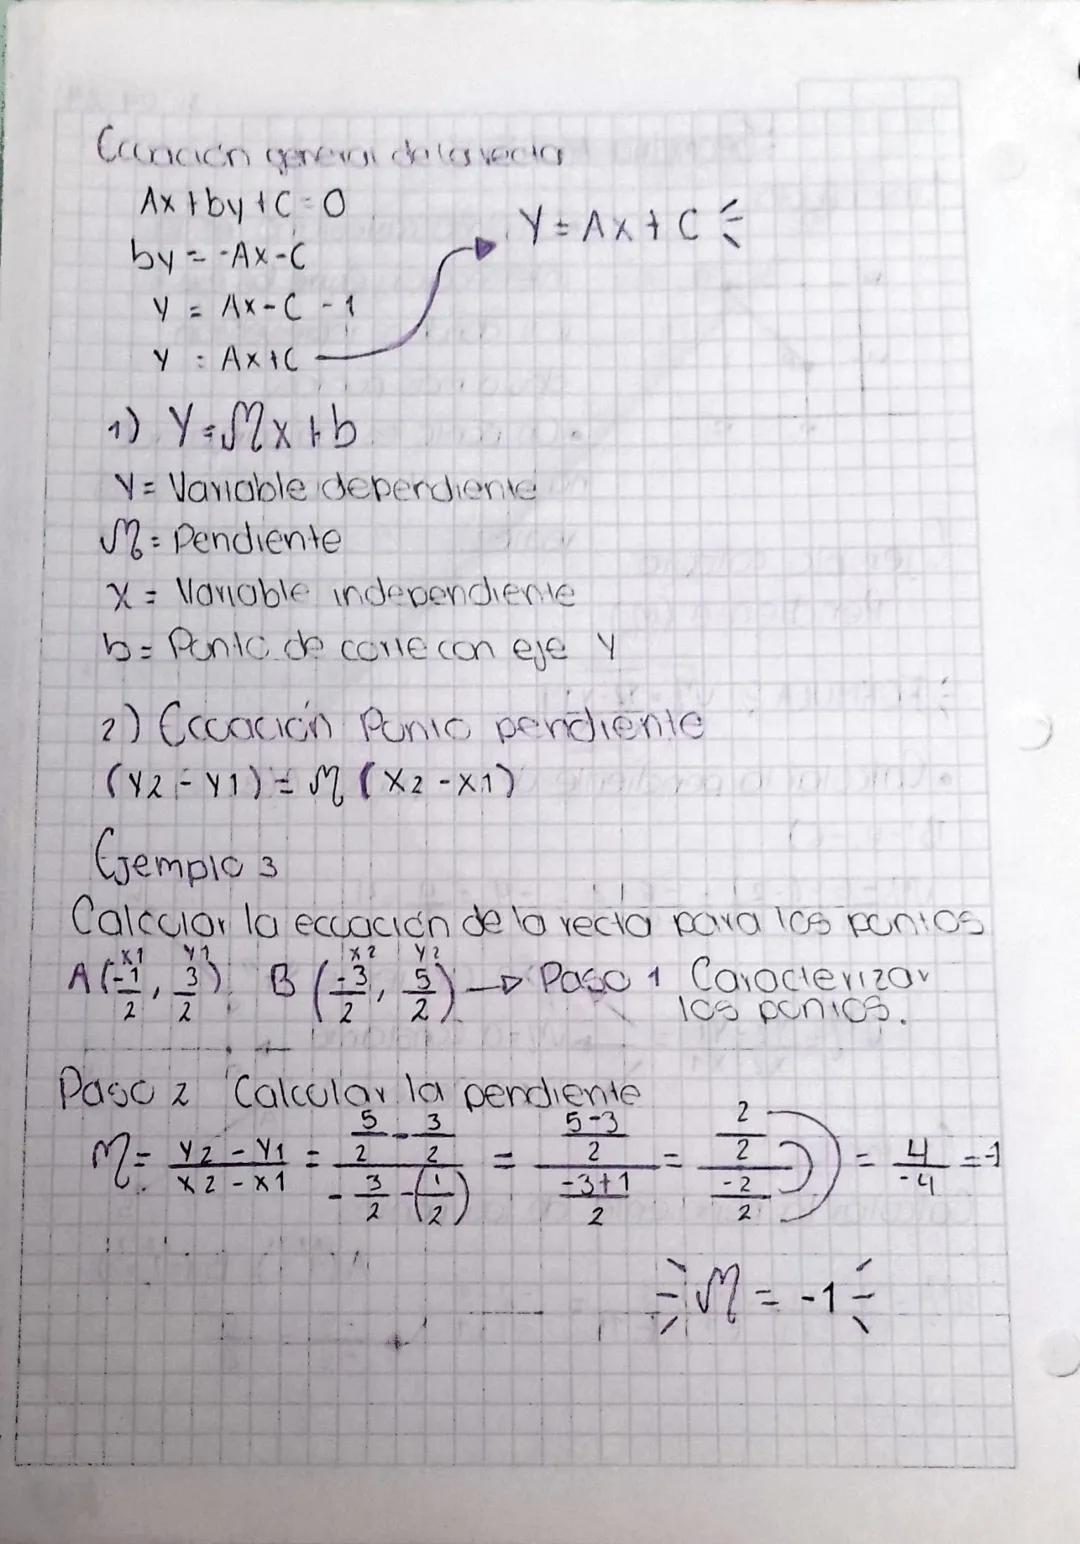 Ecuación general de la recta
Ax+by+C=0
Y=Ax+C
by=-Ax-C
Y = Ax-C -1
Y = Ax+C
1) Y=Mx+b
Y= Variable dependiente
M= Pendiente
X= Variable independiente
b= Punto de corte con eje Y
2) Ecuación Punto pendiente
(Y2-Y1)=M(X2-X1)
Ejemplo 3
Calcular la ecuación de la recta para los puntos
x1 y1 x2 y2
A(-1/2, 3/2) B(-3/2, 5/2) → Paso 1 Caracterizar
los puntos.
Paso 2 Calcular la pendiente
M= (Y2-Y1)/(X2-X1) = (5/2 - 3/2)/(-3/2 -(1/2)) = ((5-3)/2)/((-3+1)/2) = (2/2)/(-2/2) = 4/-4 = -1
M = -1